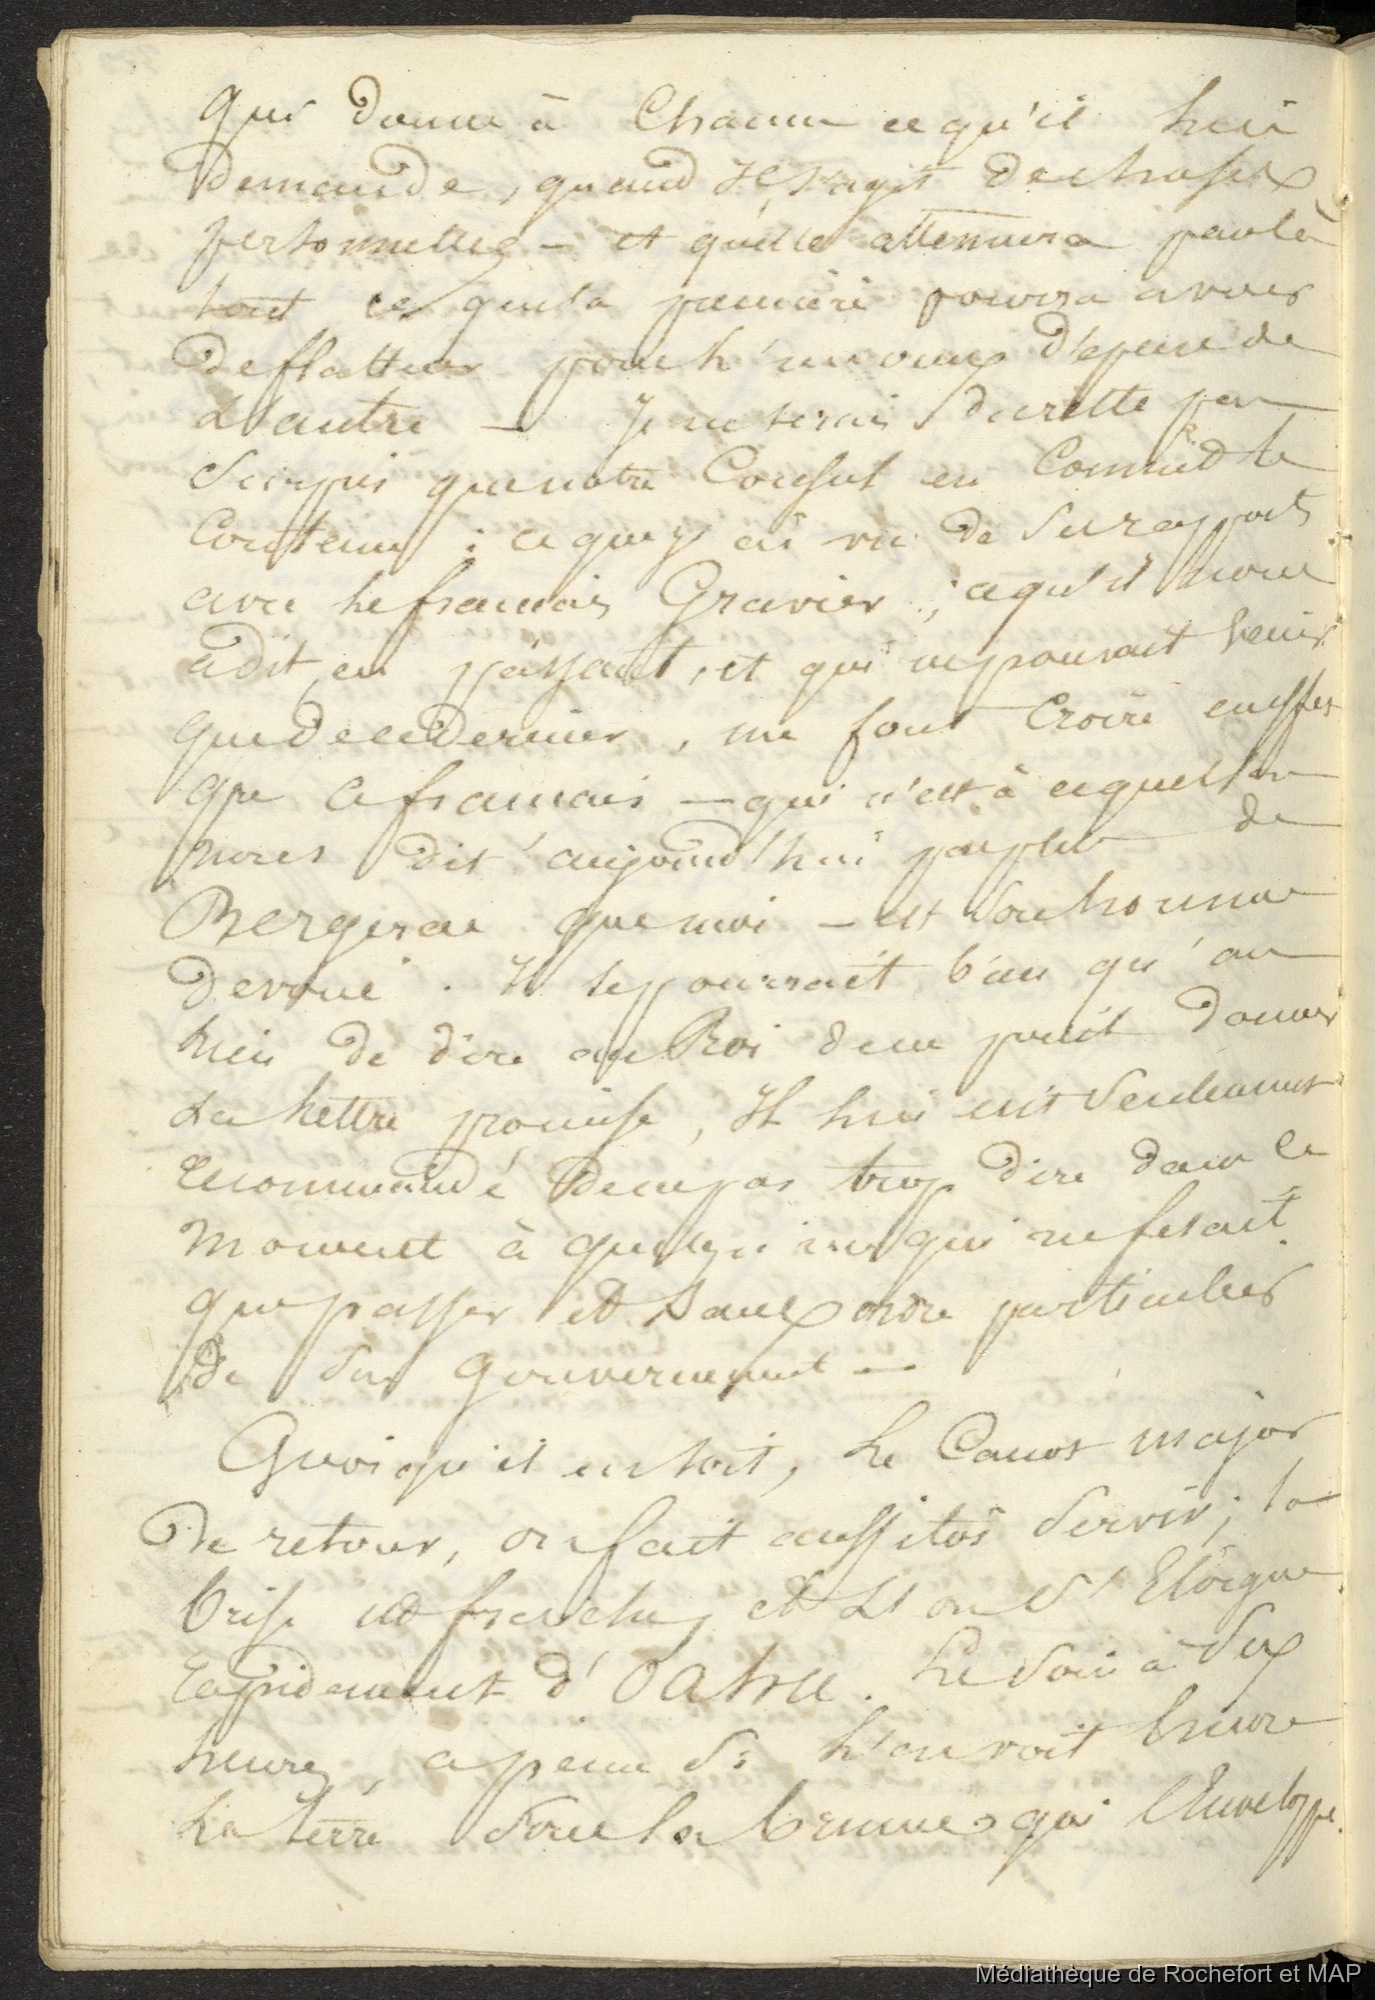 qui donne à Chacun ce qu'il lui
demande, quand Il s'agit de choses
personnelles — et qu'elle attenuera par là
tout ce que la premiere pourra avoir
de flatteur pour l'un aux depens de
L'autre — Je ne serais du reste pas
Surpris que notre Consul en Connut le
Contenu : ce que j'ai vu de Ses rapports
avec le français Gravier ; ce qu'il nous
a dit en passant, et qui ne pouvait venir
que de ce dernier, me font Croire en effet
que ce français — qui n'est à ce que l'on
nous dit aujourd'hui pas plus de
Bergerac que moi — est Son homme
devoué. Il se pourrait b'en qu'au
lieu de dire au Roi de ne point donner
La lettre promise, Il lui eut Seulement
recommandé de ne pas trop dire dans le
moment à quelqu'un qui ne fesait
que passer et Sans ordre particulier
de Son Gouvernement —
Quoiqu'il en soit, Le Canot major
de retour, on fait aussitôt Servir ; la
brise est fraiche, et L'on S'Eloigne
rapidement d'Oahu. Le Soir à Six
heures, a peine Si l'on voit encore
La terre Sous la brume qui l'Enveloppe.
Médiathèque de Rochefort et MAP